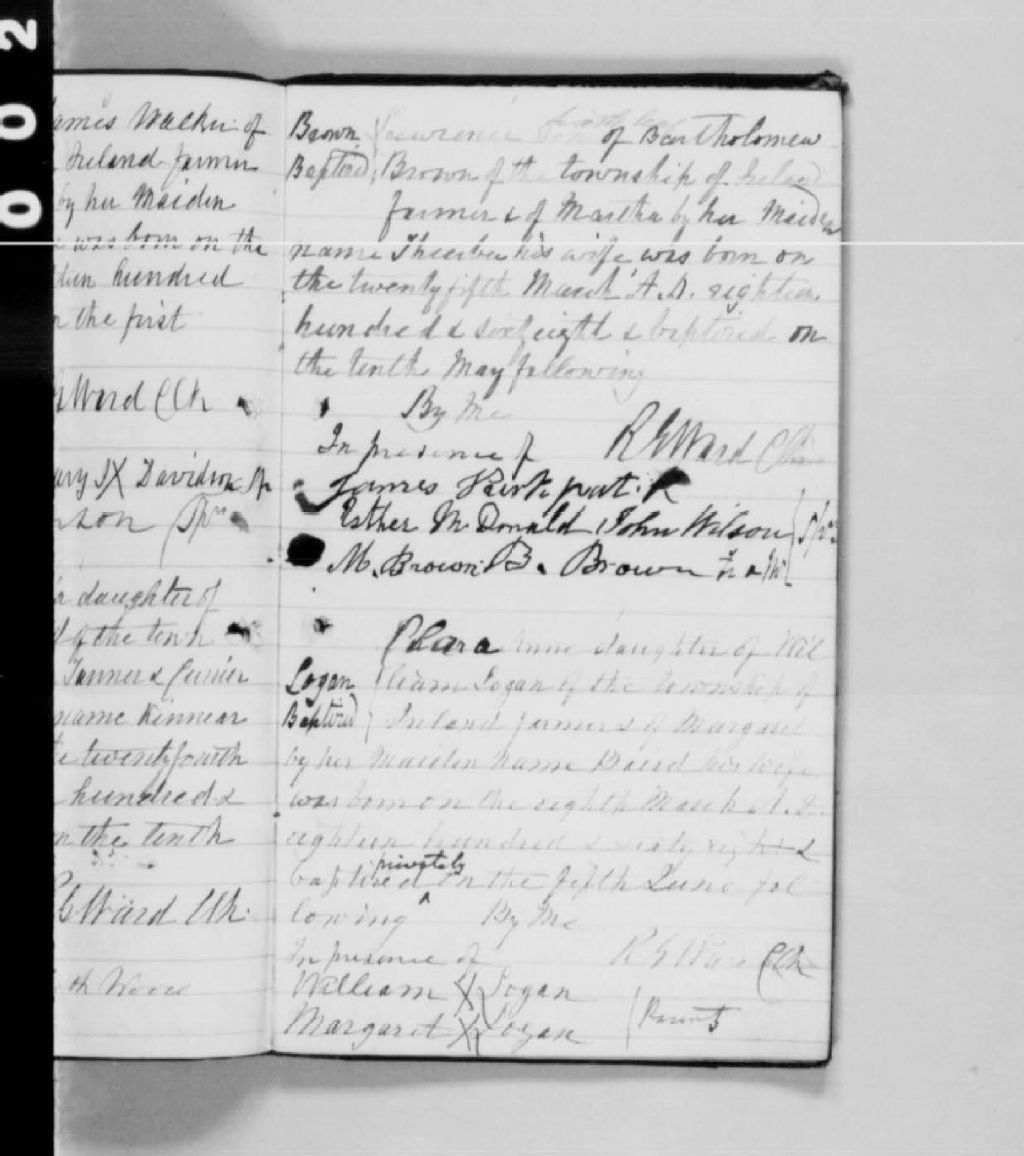 002
ames Walker of
Ireland farmer
by her Maiden
was born on the
hundred
n the first
Ward Clk
ary X Davidson
son Sprs
a daughter of
d of the town
Tanner & Currier
name Kinnear
e twentyfourth
hundred &
on the tenth
G Ward Clk
th Wood
Brown Lawrence of Bartholomew
Baptised Brown of the township of Ireland
farmer & of Martha by her Maiden
name his wife was born on
the twenty fifth March A.D. eighteen
hundred & sixty eight & baptised on
the tenth May following
By Me
In presence of R G Ward Clk
James Kirkpatrick
Esther McDonald John Wilson Sprs
M. Brown B. Brown
Clara Anne daughter of Wil
Logan liam Logan of the township of
Baptised Ireland farmer & of Margaret
by her Maiden name Baird his wife
was born on the eighth March A.D.
eighteen hundred & sixty eight &
privately
baptised on the fifth June fol
lowing By Me
In presence of R G Ward Clk
William X Logan
Margaret X Logan Parents